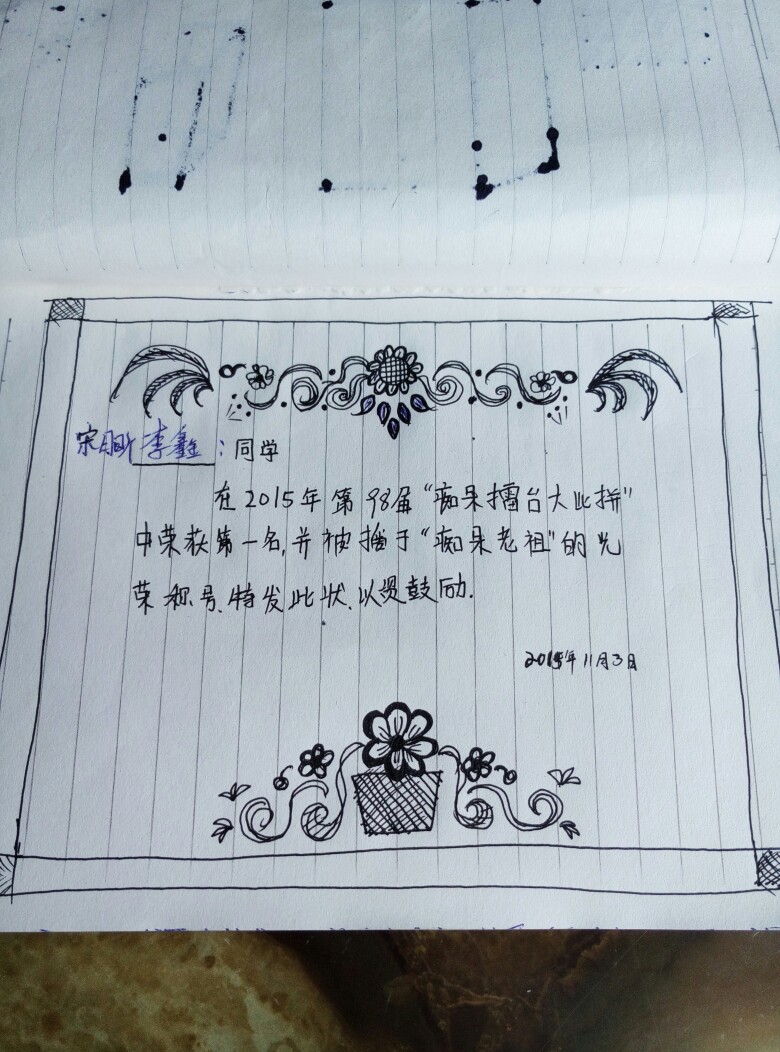 李鑫:同学
在2015年第98届“痴呆擂台大比拼”
中荣获第一名,并被授于“痴呆老祖”的光
荣称号.特发此状.以资鼓励.
2015年11月3日